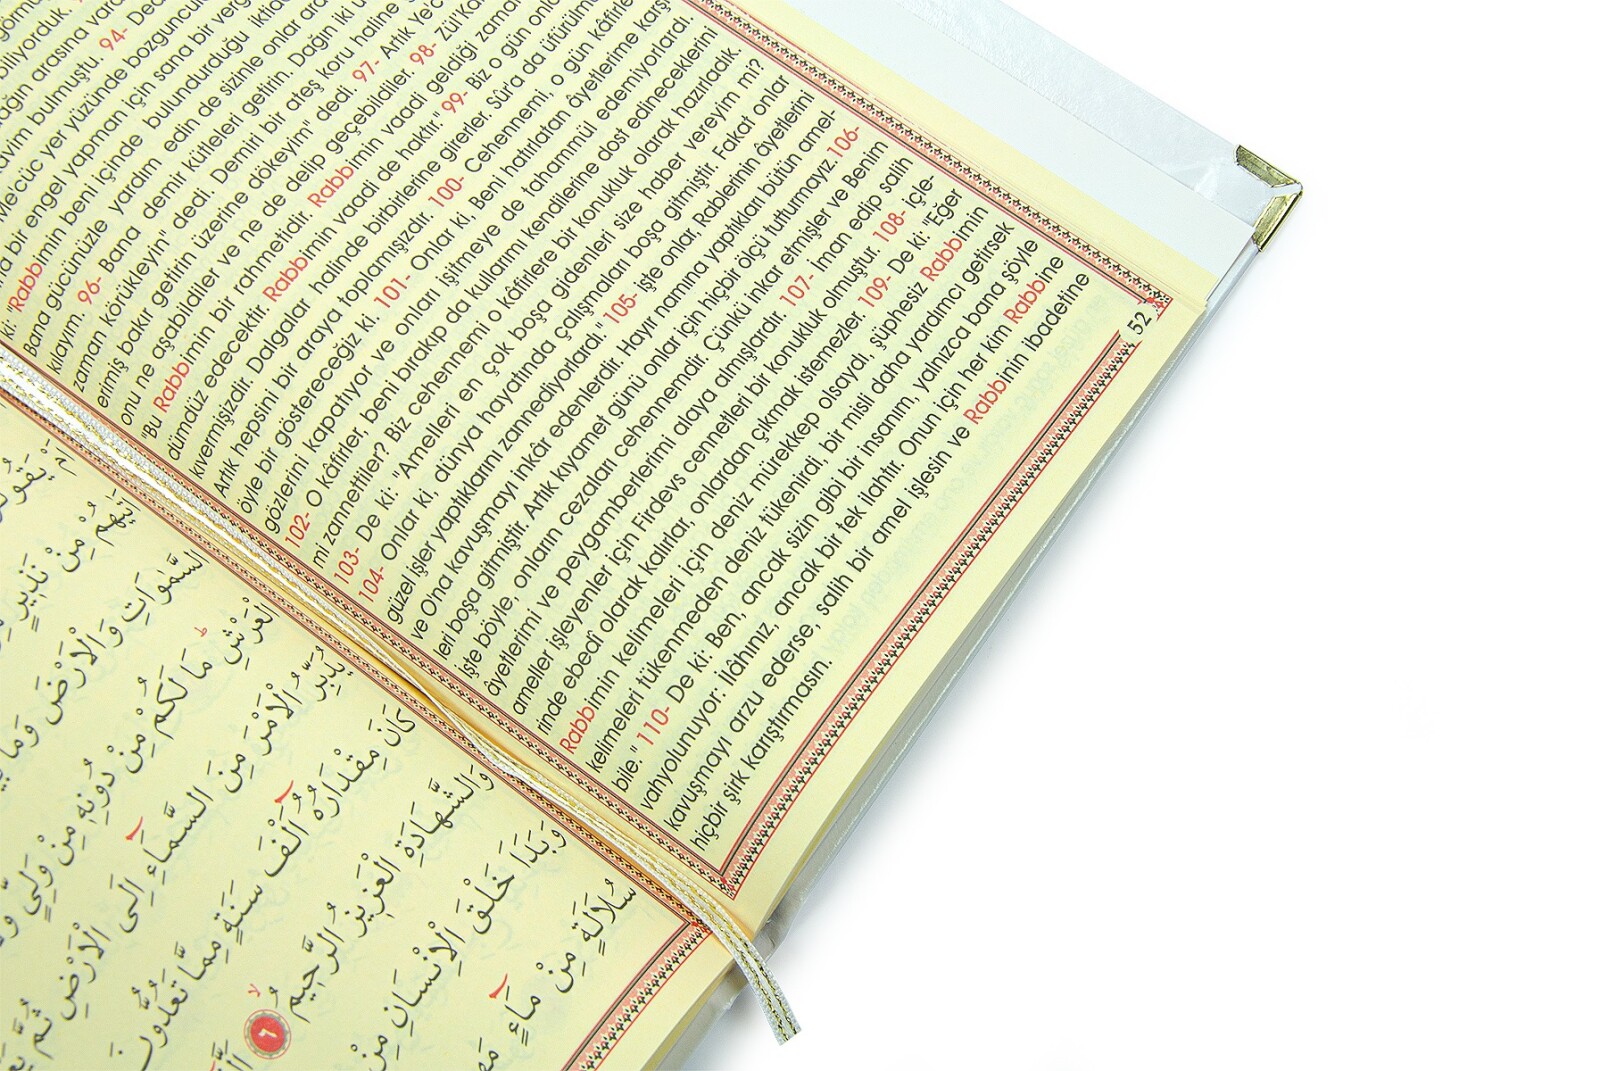 görmüş
biliyorduk.
dağın arasına vardı
kavim bulmuştu. 94- Dediler
Mecüc yer yüzünde bozgunculuk
na bir engel yapman için sana bir vergi
ki "Rabbimin beni içinde bulundurduğu iktidar
Bana gücünüzle yardım edin de sizinle onlar ara
kılayım. 96- Bana demir kütleleri getirin. Dağın iki u
zaman körükleyin" dedi. Demiri bir ateş koru haline g
erimiş bakır getirin üzerine dökeyim" dedi. 97- Artık Ye'c
onu ne aşabildiler ve ne de delip geçebildiler. 98- Zül'Ka
"Bu Rabbimin bir rahmetidir. Rabbimin vaadi geldiği zama
dümdüz edecektir. Rabbimin vaadi de haktır." 99- Biz o gün onla
kıvermişizdir. Dalgalar halinde birbirlerine girerler. Sûr'a da üfürülm
Artık hepsini bir araya toplamışızdır. 100- Cehennemi, o gün kâfirle
öyle bir göstereceğiz ki. 101- Onlar ki, Beni hatırlatan âyetlerime karşı
gözlerini kapatıyor ve onları işitmeye de tahammül edemiyorlardı.
102- O kâfirler, beni bırakıp da kullarımı kendilerine dost edineceklerini
mi zannettiler? Biz cehennemi o kâfirlere bir konukluk olarak hazırladık.
103- De ki: "Amelleri en çok boşa gidenleri size haber vereyim mi?
104- Onlar ki, dünya hayatında çalışmaları boşa gitmiştir. Fakat onlar
güzel işler yaptıklarını zannediyorlardı." 105- işte onlar, Rablerinin âyetlerini
ve O'na kavuşmayı inkâr edenlerdir. Hayır namına yaptıkları bütün amel-
leri boşa gitmiştir. Artık kıyamet günü onlar için hiçbir ölçü tutturmayız. 106-
İşte böyle, onların cezaları cehennemdir. Çünkü inkar etmişler ve Benim
âyetlerimi ve peygamberlerimi alaya almışlardır. 107- İman edip salih
ameller işleyenler için Firdevs cennetleri bir konukluk olmuştur. 108- içle-
rinde ebedî olarak kalırlar, onlardan çıkmak istemezler. 109- De ki: "Eğer
Rabbimin kelimeleri için deniz mürekkep olsaydı, şüphesiz Rabbimin
kelimeleri tükenmeden deniz tükenirdi, bir misli daha yardımcı getirsek
bile." 110- De ki: Ben, ancak sizin gibi bir insanım, yalnızca bana şöyle
vahyolunuyor: İlâhınız, ancak bir tek ilahtır. Onun için her kim Rabbine
kavuşmayı arzu ederse, salih bir amel işlesin ve Rabbinin ibadetine
hiçbir şirk karıştırmasın.
52
اَمْ يَقُولُونَ
اَتٰيهُمْ مِنْ نَذِيرٍ
السَّمٰوَاتِ وَالْاَرْضَ وَمَا
الْعَرْشِ مَا لَكُمْ مِنْ دُونِهِ مِنْ وَلِيٍّ
يُدَبِّرُ الْاَمْرَ مِنَ السَّمَاءِ اِلَى الْاَرْضِ ثُمَّ
كَانَ مِقْدَارُهُ اَلْفَ سَنَةٍ مِمَّا تَعُدُّونَ
وَالشَّهَادَةِ الْعَزِيزُ الرَّحِيمُ ٦
وَبَدَاَ خَلْقَ الْاِنْسَانِ مِنْ
سُلَالَةٍ مِنْ مَاءٍ